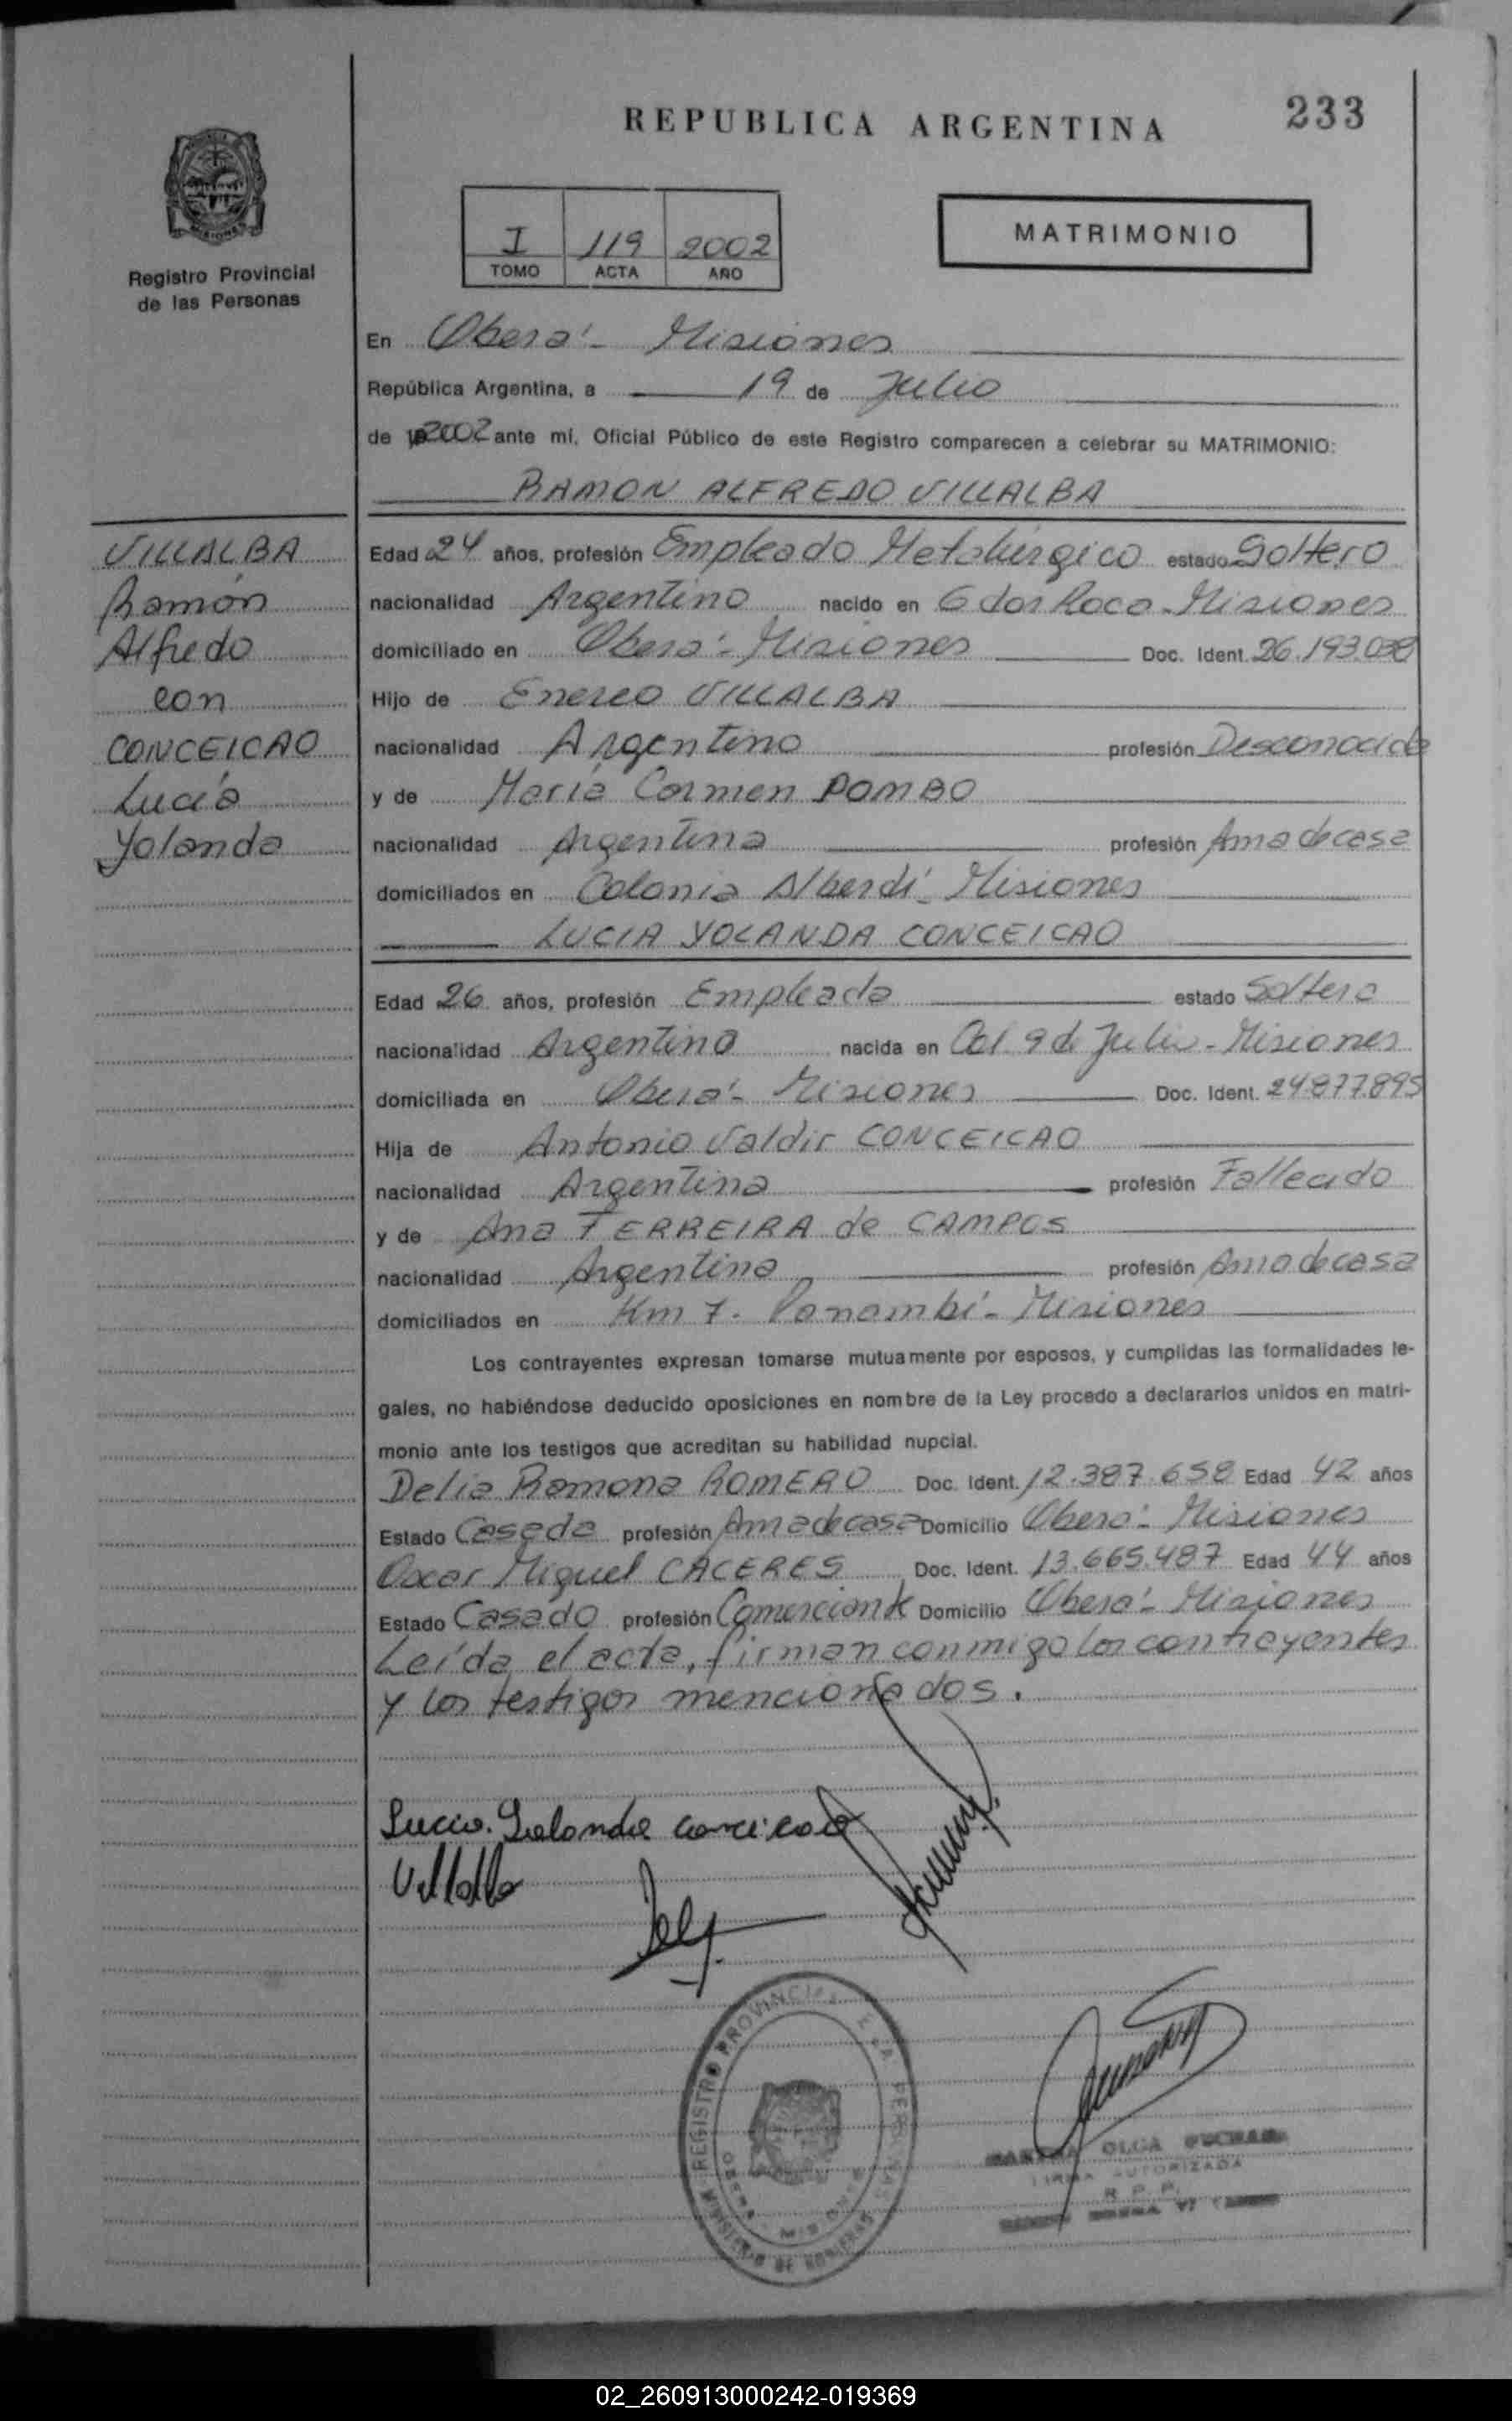 REPUBLICA ARGENTINA
233
Registro Provincial
de las Personas
I 119 2002
TOMO ACTA AÑO
MATRIMONIO
En Oberá - Misiones
República Argentina, a 19 de Julio
de 2002 ante mí, Oficial Público de este Registro comparecen a celebrar su MATRIMONIO:
RAMON ALFREDO VILLALBA
VILLALBA
Ramón
Alfredo
con
CONCEICAO
Lucía
Yolanda
Edad 24 años, profesión Empleado Metalúrgico estado Soltero
nacionalidad Argentino nacido en Gdor Roca - Misiones
domiciliado en Oberá - Misiones Doc. Ident. 26.193.038
Hijo de Enereo VILLALBA
nacionalidad Argentino profesión Desconocida
y de María Carmen POMBO
nacionalidad Argentina profesión Ama de casa
domiciliados en Colonia Alberdi - Misiones
LUCIA YOLANDA CONCEICAO
Edad 26 años, profesión Empleada estado Soltera
nacionalidad Argentina nacida en Col. 9 de Julio - Misiones
domiciliada en Oberá - Misiones Doc. Ident. 24.877.895
Hija de Antonio Valdir CONCEICAO
nacionalidad Argentina profesión Fallecido
y de Ana FERREIRA de CAMPOS
nacionalidad Argentina profesión Ama de casa
domiciliados en Km 7. Panambí - Misiones
Los contrayentes expresan tomarse mutuamente por esposos, y cumplidas las formalidades le-
gales, no habiéndose deducido oposiciones en nombre de la Ley procedo a declararlos unidos en matri-
monio ante los testigos que acreditan su habilidad nupcial.
Delia Ramona ROMERO Doc. Ident. 12.387.658 Edad 42 años
Estado Casada profesión Ama de casa Domicilio Oberá - Misiones
Oscar Miguel CACERES Doc. Ident. 13.665.487 Edad 44 años
Estado Casado profesión Comerciante Domicilio Oberá - Misiones
Leída el acta, firman conmigo los contrayentes
y los testigos mencionados.
Lucia Yolanda Conceicao
Villalba
REGISTRO PROVINCIAL DE LAS PERSONAS
MINISTERIO DE GOBIERNO
OLGA
FIRMA AUTORIZADA
R. P. P.
02_260913000242-019369